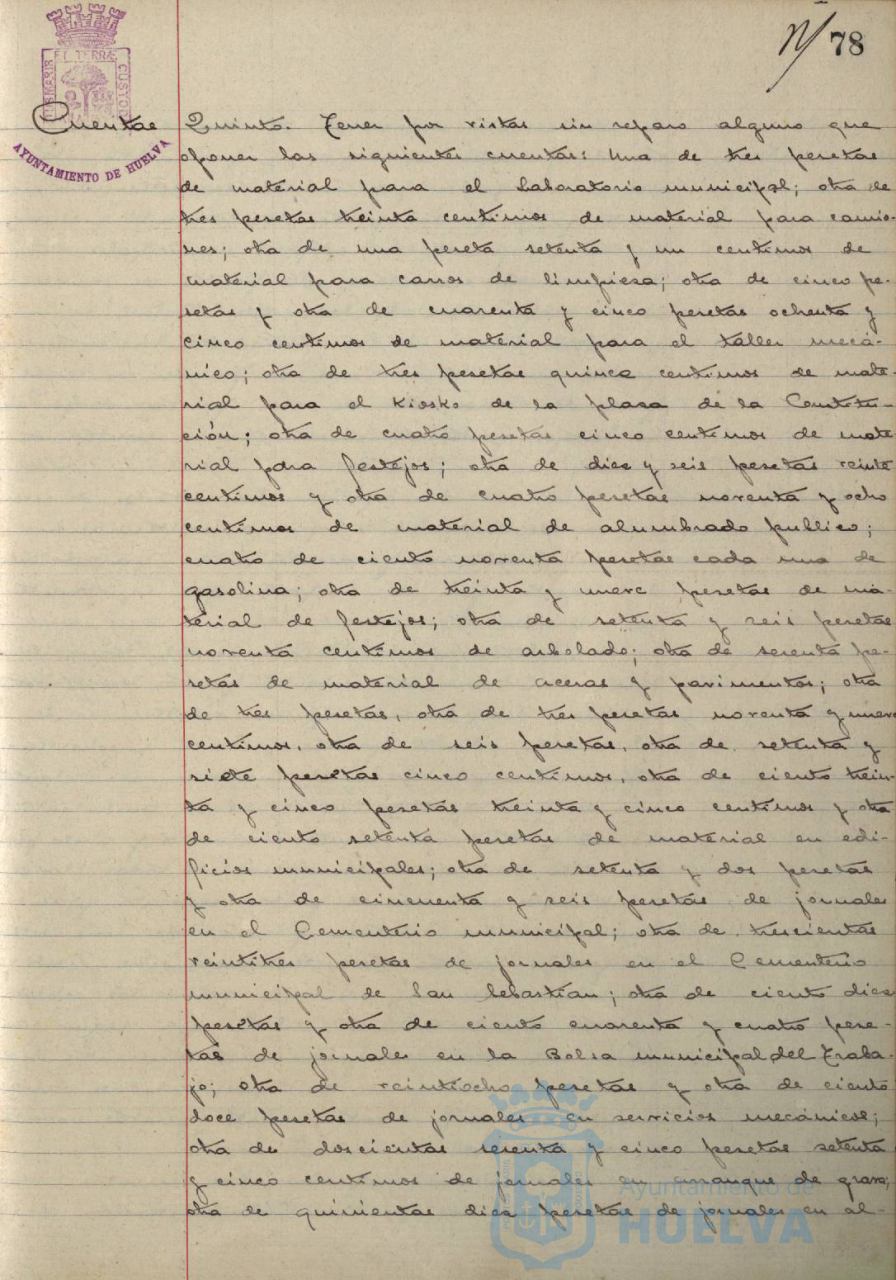 78
PORTUS MARIS ET TERRAE CUSTODIA
AYUNTAMIENTO DE HUELVA
Cuentas
Quinto. Tener por vistas sin reparo alguno que
oponer las siguientes cuentas: una de tres pesetas
de material para el Laboratorio municipal; otra de
tres pesetas treinta centimos de material para camio-
nes; otra de una peseta setenta y un centimos de
material para carros de limpiesa; otra de cinco pe-
setas y otra de cuarenta y cinco pesetas ochenta y
cinco centimos de material para el taller mecá-
nico; otra de tres pesetas quince centimos de mate-
rial para el Kiosko de la plasa de la Constitu-
ción; otra de cuatro pesetas cinco centimos de mate
rial para festejos; otra de dies y seis pesetas veinte
centimos y otra de cuatro pesetas noventa y ocho
centimos de material de alumbrado publico;
cuatro de ciento noventa pesetas cada una de
gasolina; otra de treinta y nueve pesetas de ma-
terial de festejos; otra de setenta y seis pesetas
noventa centimos de arbolado; otra de sesenta pe-
setas de material de aceras y pavimentos; otra
de tres pesetas, otra de tres pesetas noventa y nueve
centimos, otra de seis pesetas, otra de setenta y
siete pesetas cinco centimos, otra de ciento trein-
ta y cinco pesetas treinta y cinco centimos y otra
de ciento setenta pesetas de material en edi-
ficios municipales; otra de setenta y dos pesetas
y otra de cincuenta y seis pesetas de jornales
en el Cementerio municipal; otra de trescientas
veintitres pesetas de jornales en el Cementerio
municipal de San Sebastian; otra de ciento dies
pesetas y otra de ciento cuarenta y cuatro pese-
tas de jornales en la Bolsa municipal del Traba-
jo; otra de veintiocho pesetas y otra de ciento
doce pesetas de jornales en servicios mecánicos;
otra de doscientas sesenta y cinco pesetas setenta
y cinco centimos de jornales en arranque de grava;
otra de quinientas dies pesetas de jornales en al-
Ayuntamiento de
HUELVA